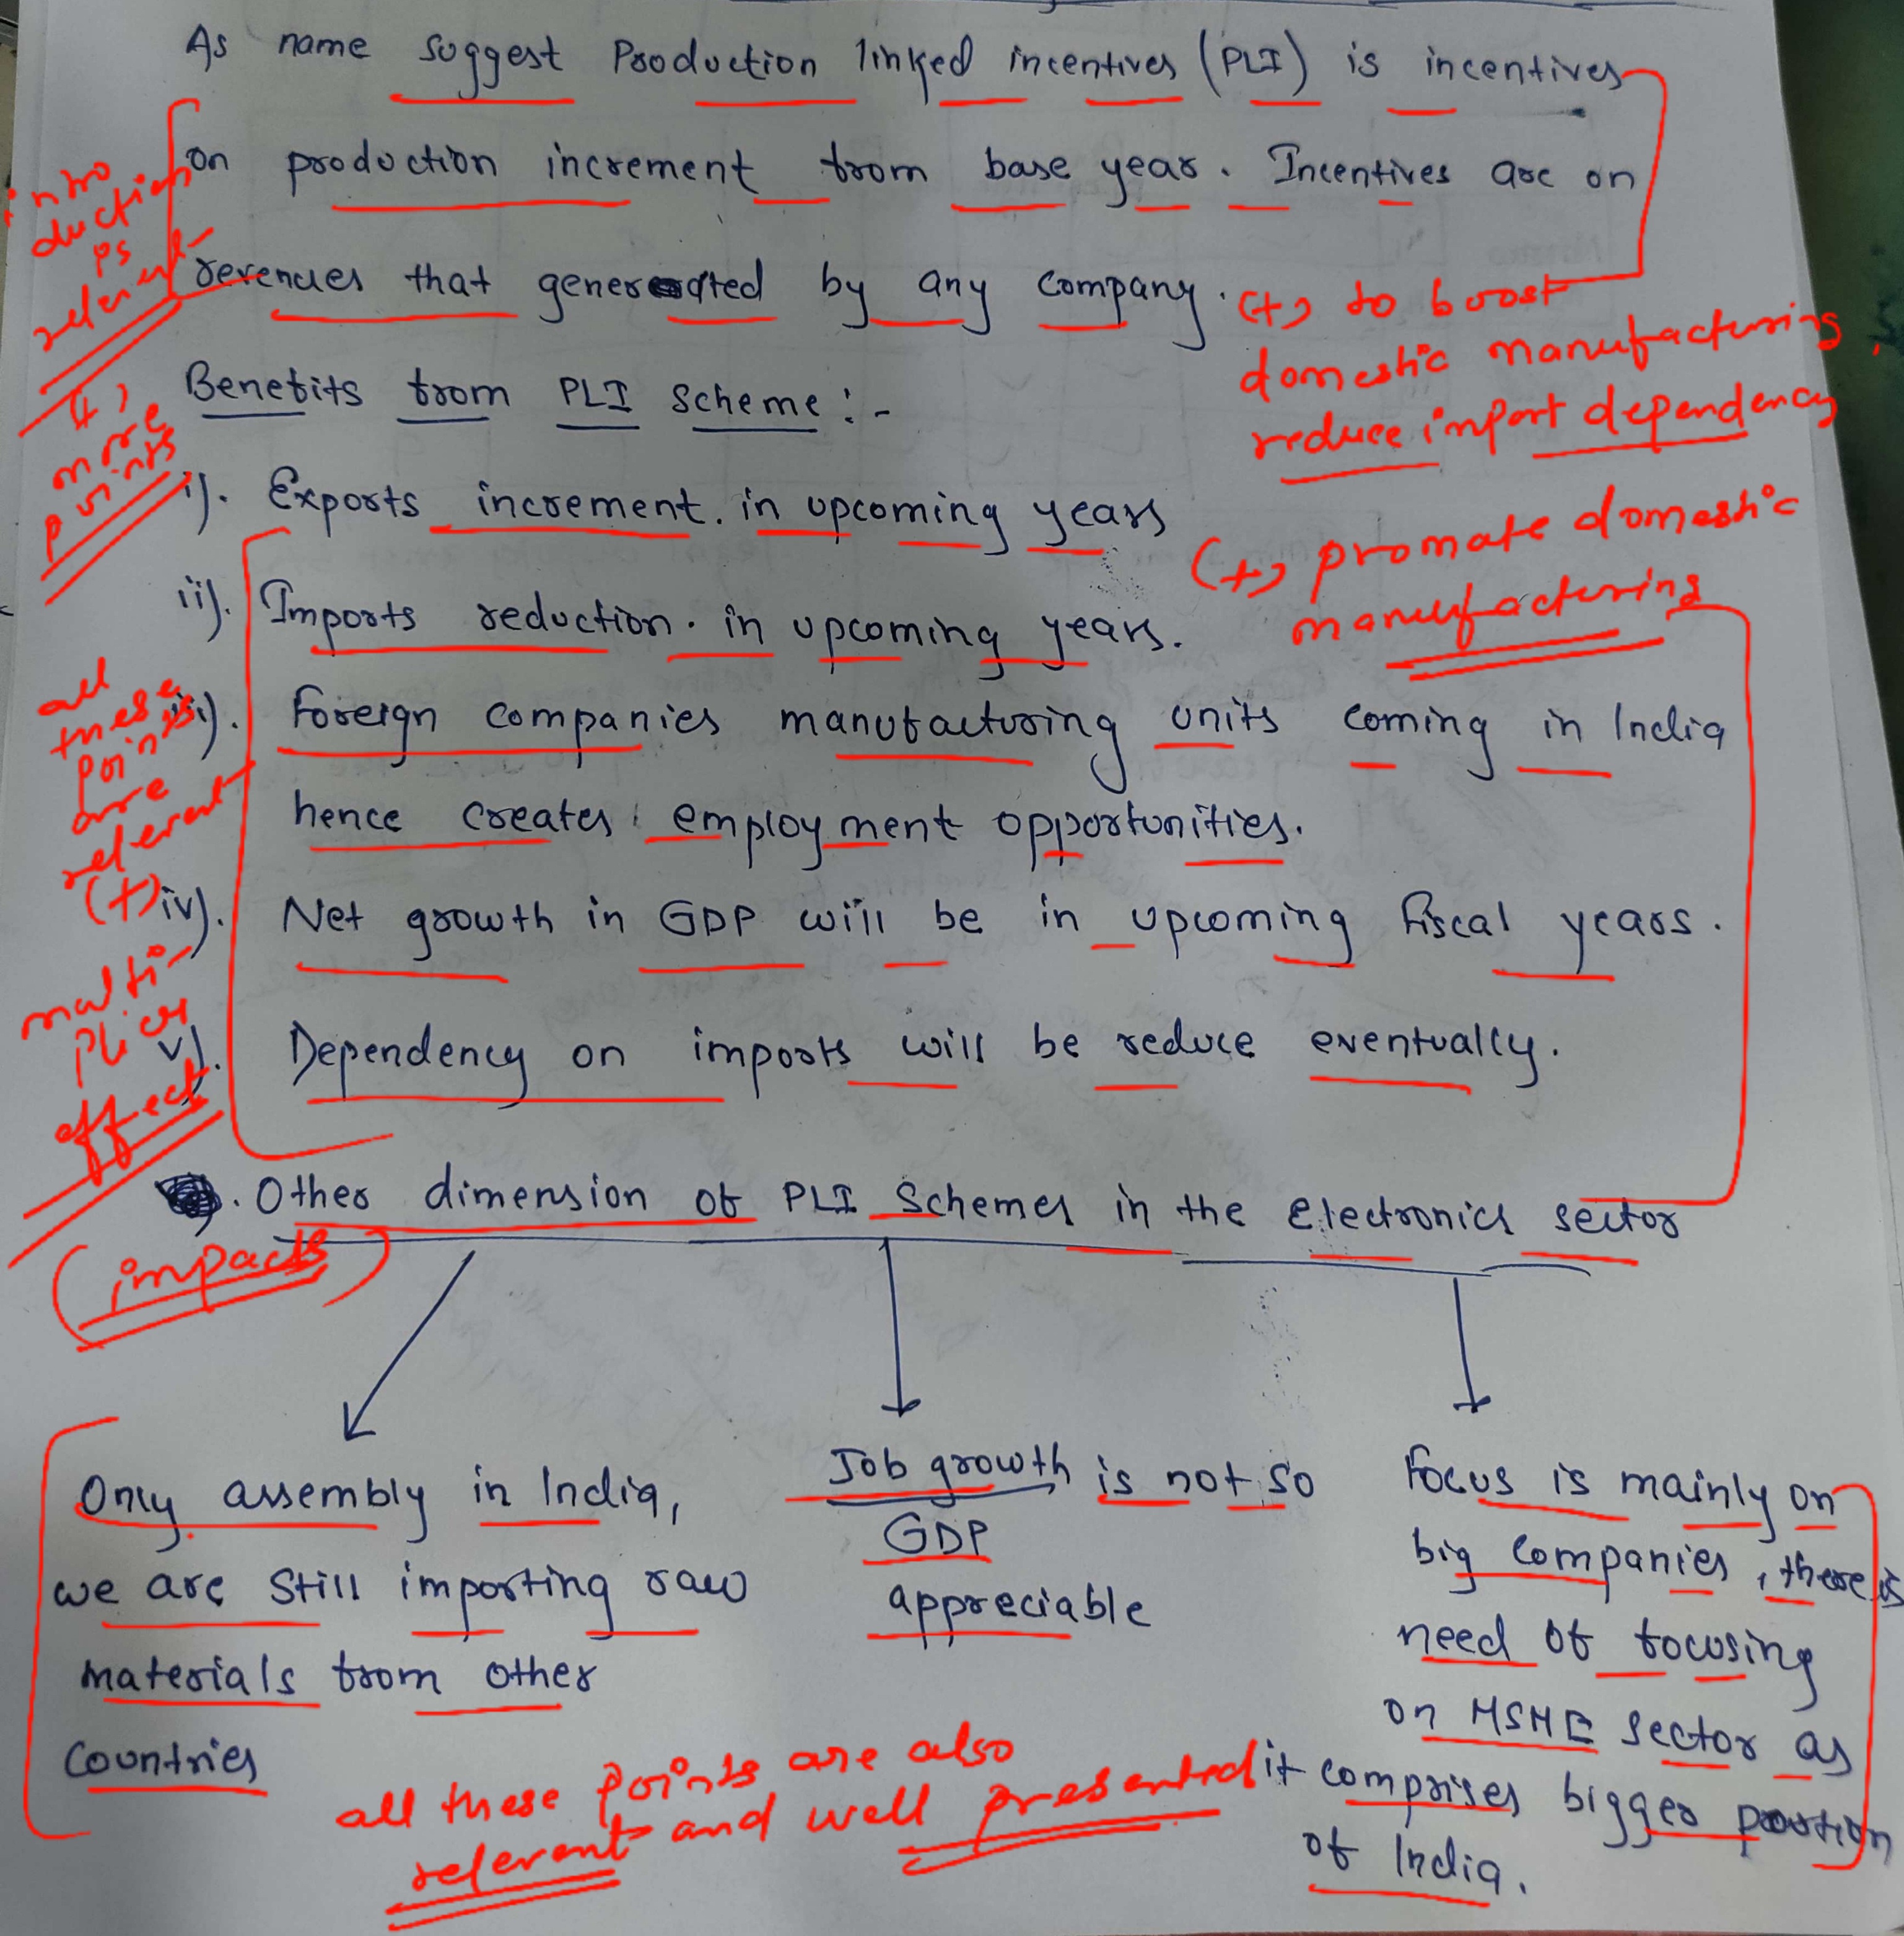 As name suggest Production linked incentives (PLI) is incentives
on production increment from base year. Incentives are on
revenues that generated by any company.
introduction
ps
relevant
(+)
more
points
(+) to boost
domestic manufacturing,
reduce import dependency
Benefits from PLI scheme :-
i). Exports increment. in upcoming years
(+) promate domestic
manufacturing
ii). Imports reduction. in upcoming years.
iii). Foreign companies manufacturing units coming in India
hence creates employment opportunities.
iv). Net growth in GDP will be in upcoming fiscal years.
v). Dependency on imports will be reduce eventually.
all
these
points
are
relevant
(+)
multi-
plier
effect
Other dimension of PLI Schemes in the electronics sector
(impacts)
Only assembly in India,
we are still importing raw
materials from other
Countries
Job growth is not so
GDP
appreciable
Focus is mainly on
big companies, there is
need of focusing
on MSME sector as
it comprises bigger portion
of India.
all these points are also
relevant and well presented